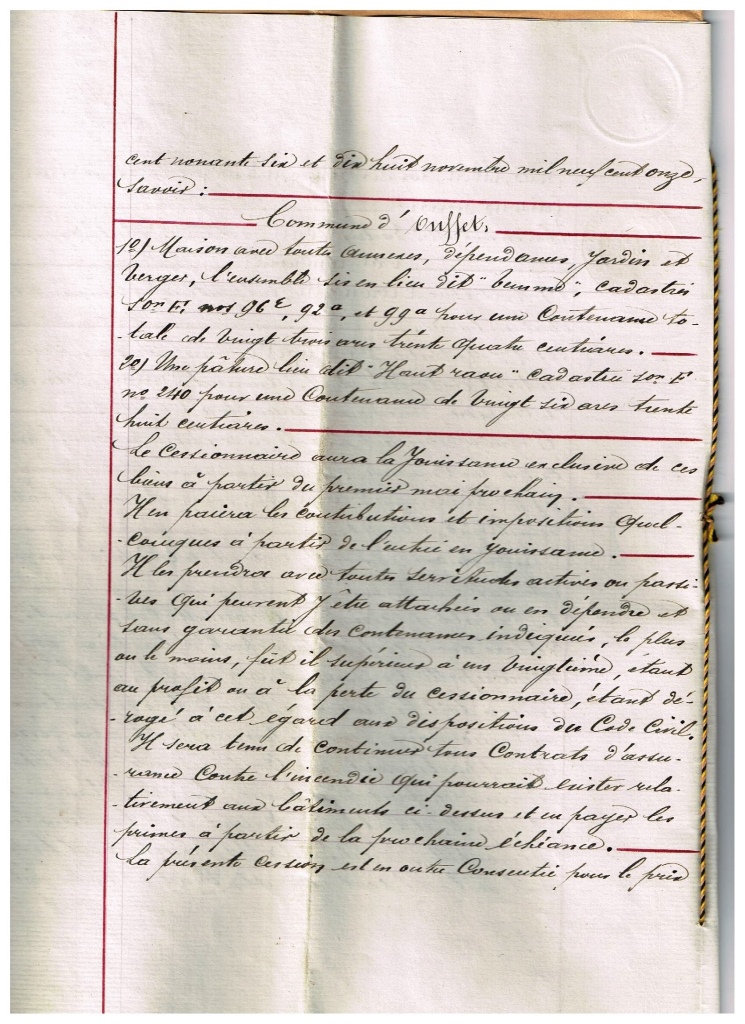 cent nonante six et dix huit novembre mil neuf cent onze,
savoir :
Commune d' Ouffet.
1o) Maison avec toutes annexes, dépendances, Jardin et
Verger, l'ensemble sis en lieu dit " ", cadastrés
son E. nos 96E, 92a, et 99a pour une Contenance to-
-tale de vingt trois ares trente quatre centiares.
2o) Une pâture lieu dit " Haut raou " cadastrée son E
no 240 pour une Contenance de vingt six ares trente
huit centiares.
Le Cessionnaire aura la Jouissance exclusive de ces
biens à partir du premier mai prochain.
Il en paiera les contributions et impositions quel-
-conques à partir de l'entrée en jouissance.
Il les prendra avec toutes servitudes actives ou passi-
-ves qui peuvent y être attachées ou en dépendre et
sans garantie des contenances indiquées, le plus
ou le moins, fût il supérieur à un vingtième, étant
au profit ou à la perte du cessionnaire, étant dé-
-rogé à cet égard aux dispositions du Code Civil.
Il sera tenu de continuer tous Contrats d'assu-
-rance Contre l'incendie qui pourrait exister rela-
-tivement aux bâtiments ci-dessus et en payer les
primes à partir de la prochaine échéance.
La présente cession est en outre Consentie pour le prix